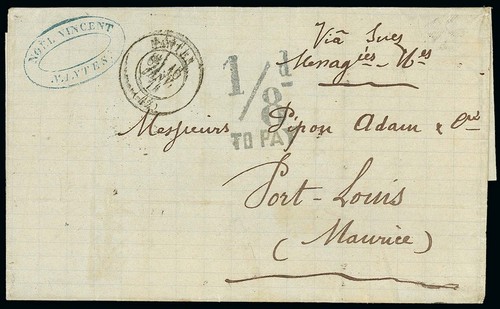 NOËL VINCENT
NANTES
NANTES
(42)
1/8d
TO PAY
Viâ Suez
Messageies Nes
Messieurs Pipon Adam & Cie
Port-Louis
(Maurice)